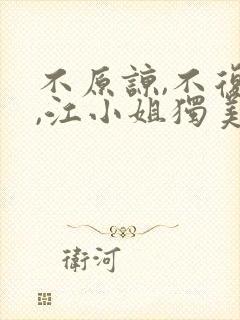 不原諒,不復
,江小姐獨美
衛河